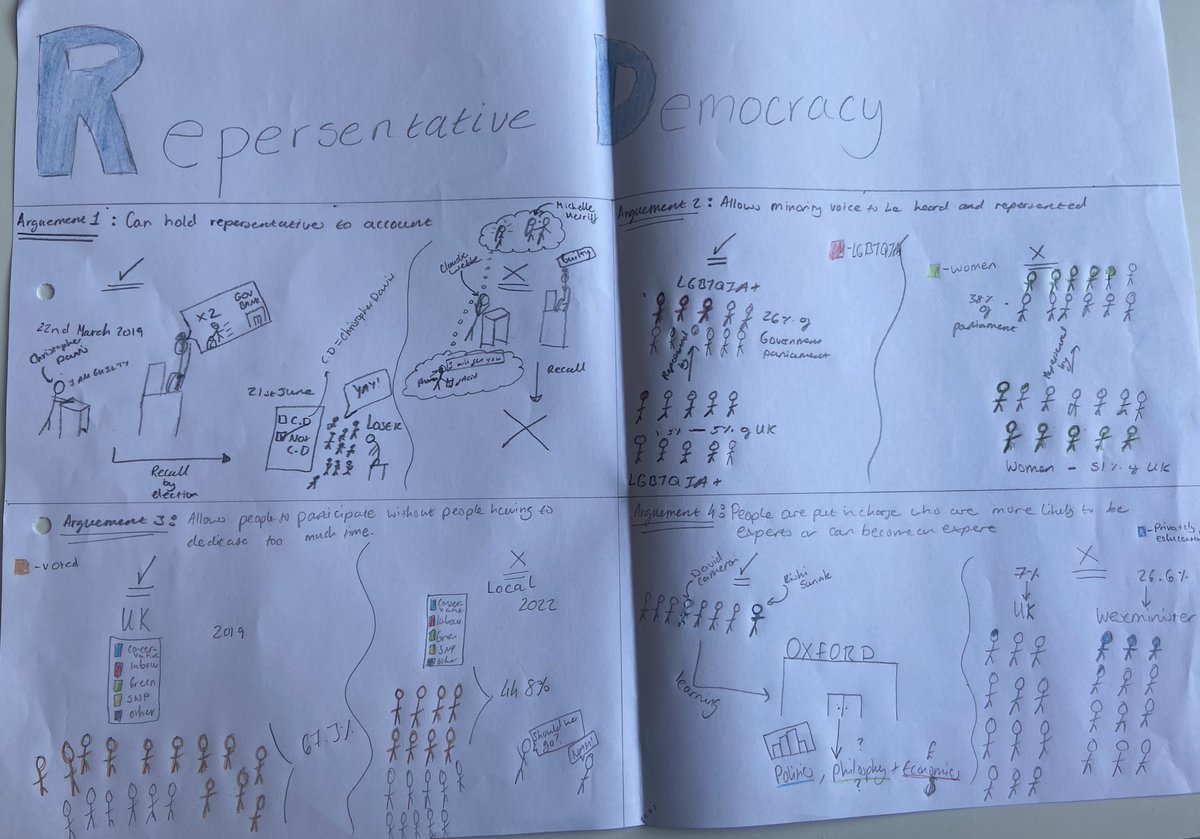 Repersentative Democracy
Arguement 1: Can hold repersentative to account
22nd March 2019
Christopher Davis
I AM GUILTY
X2
GOV BANK
Recall by election
21st June
C.D
Not C.D
C.D = Christopher Davis
YAY!
LOSER
Claudia Webbe
Michelle Merritt
Guilty
Recall
Arguement 2: Allows minority voice to be heard and repersented
LGBTQIA+
26% of
Government
parliament
Repersented by
1.5% - 5% of UK
LGBTQIA+
-LGBTQIA
-women
38% of
parliament
Repersented by
Women - 51% of UK
Arguement 3: Allows people to participate without people having to
dedicate too much time.
-voted
UK
2019
Conservative
labour
Green
SNP
other
67.3%
Local
2022
Conservative
labour
Green
SNP
other
44.8%
Should we go?
Arguement 4: People are put in charge who are more likely to be
experts or can become an expert
-Privately educated
David Cameron
Rishi Sunak
learning
OXFORD
?
£
Politics, Philosophy + Economic
?
$
7%
UK
26.6%
Westminister